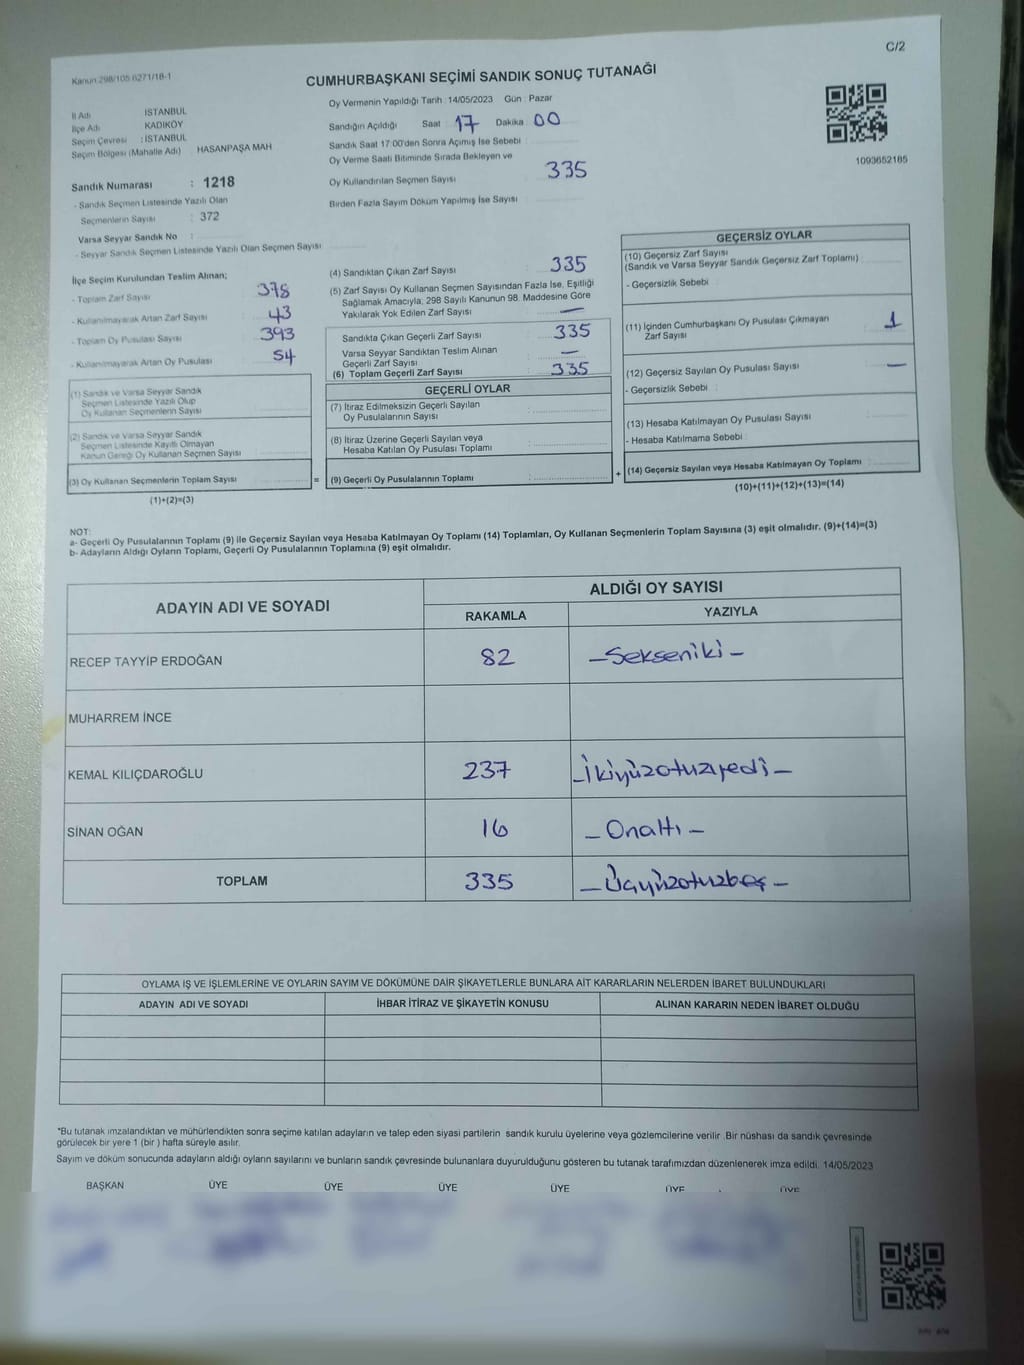 C/2
Kanun 298/105 6271/18-1
CUMHURBAŞKANI SEÇİMİ SANDIK SONUÇ TUTANAĞI
İl Adı İSTANBUL
İlçe Adı KADIKÖY
Seçim Çevresi : İSTANBUL
Seçim Bölgesi (Mahalle Adı) HASANPAŞA MAH
Sandık Numarası : 1218
- Sandık Seçmen Listesinde Yazılı Olan
Seçmenlerin Sayısı : 372
Varsa Seyyar Sandık No :
- Seyyar Sandık Seçmen Listesinde Yazılı Olan Seçmen Sayısı
Oy Vermenin Yapıldığı Tarih : 14/05/2023 Gün : Pazar
Sandığın Açıldığı Saat 17 Dakika 00
Sandık Saat 17:00'den Sonra Açımış İse Sebebi
Oy Verme Saati Bitiminde Sırada Bekleyen ve
Oy Kullandırılan Seçmen Sayısı 335
Birden Fazla Sayım Döküm Yapılmış İse Sayısı
1093652185
İlçe Seçim Kurulundan Teslim Alınan;
- Toplam Zarf Sayısı 378
- Kullanılmayarak Artan Zarf Sayısı 43
- Toplam Oy Pusulası Sayısı 393
- Kullanılmayarak Artan Oy Pusulası 54
(1) Sandık ve Varsa Seyyar Sandık
Seçmen Listesinde Yazılı Olup
Oy Kullanan Seçmenlerin Sayısı
(2) Sandık ve Varsa Seyyar Sandık
Seçmen Listesinde Kayıtlı Olmayan
Kanun Gereği Oy Kullanan Seçmen Sayısı
(3) Oy Kullanan Seçmenlerin Toplam Sayısı
(1)+(2)=(3)
=
(4) Sandıktan Çıkan Zarf Sayısı 335
(5) Zarf Sayısı Oy Kullanan Seçmen Sayısından Fazla İse, Eşitliği
Sağlamak Amacıyla, 298 Sayılı Kanunun 98. Maddesine Göre
Yakılarak Yok Edilen Zarf Sayısı —
Sandıkta Çıkan Geçerli Zarf Sayısı 335
Varsa Seyyar Sandıktan Teslim Alınan
Geçerli Zarf Sayısı —
(6) Toplam Geçerli Zarf Sayısı 335
GEÇERLİ OYLAR
(7) İtiraz Edilmeksizin Geçerli Sayılan
Oy Pusulalarının Sayısı
(8) İtiraz Üzerine Geçerli Sayılan veya
Hesaba Katılan Oy Pusulası Toplamı
(9) Geçerli Oy Pusulalarının Toplamı
+
GEÇERSİZ OYLAR
(10) Geçersiz Zarf Sayısı
(Sandık ve Varsa Seyyar Sandık Geçersiz Zarf Toplamı)
- Geçersizlik Sebebi :
(11) İçinden Cumhurbaşkanı Oy Pusulası Çıkmayan
Zarf Sayısı 1
(12) Geçersiz Sayılan Oy Pusulası Sayısı —
- Geçersizlik Sebebi :
(13) Hesaba Katılmayan Oy Pusulası Sayısı
- Hesaba Katılmama Sebebi :
(14) Geçersiz Sayılan veya Hesaba Katılmayan Oy Toplamı :
(10)+(11)+(12)+(13)=(14)
NOT:
a- Geçerli Oy Pusulalarının Toplamı (9) ile Geçersiz Sayılan veya Hesaba Katılmayan Oy Toplamı (14) Toplamları, Oy Kullanan Seçmenlerin Toplam Sayısına (3) eşit olmalıdır. (9)+(14)=(3)
b- Adayların Aldığı Oyların Toplamı, Geçerli Oy Pusulalarının Toplamına (9) eşit olmalıdır.
ADAYIN ADI VE SOYADI ALDIĞI OY SAYISI
RAKAMLA YAZIYLA
RECEP TAYYİP ERDOĞAN 82 –Sekseniki–
MUHARREM İNCE
KEMAL KILIÇDAROĞLU 237 –İkiyüzotuzyedi–
SİNAN OĞAN 16 –Onaltı–
TOPLAM 335 –Üçyüzotuzbeş–
OYLAMA İŞ VE İŞLEMLERİNE VE OYLARIN SAYIM VE DÖKÜMÜNE DAİR ŞİKAYETLERLE BUNLARA AİT KARARLARIN NELERDEN İBARET BULUNDUKLARI
ADAYIN ADI VE SOYADI İHBAR İTİRAZ VE ŞİKAYETİN KONUSU ALINAN KARARIN NEDEN İBARET OLDUĞU
*Bu tutanak imzalandıktan ve mühürlendikten sonra seçime katılan adayların ve talep eden siyasi partilerin sandık kurulu üyelerine veya gözlemcilerine verilir. Bir nüshası da sandık çevresinde
görülecek bir yere 1 (bir) hafta süreyle asılır.
Sayım ve döküm sonucunda adayların aldığı oyların sayılarını ve bunların sandık çevresinde bulunanlara duyurulduğunu gösteren bu tutanak tarafımızdan düzenlenerek imza edildi. 14/05/2023
BAŞKAN ÜYE ÜYE ÜYE ÜYE ÜYE ÜYE